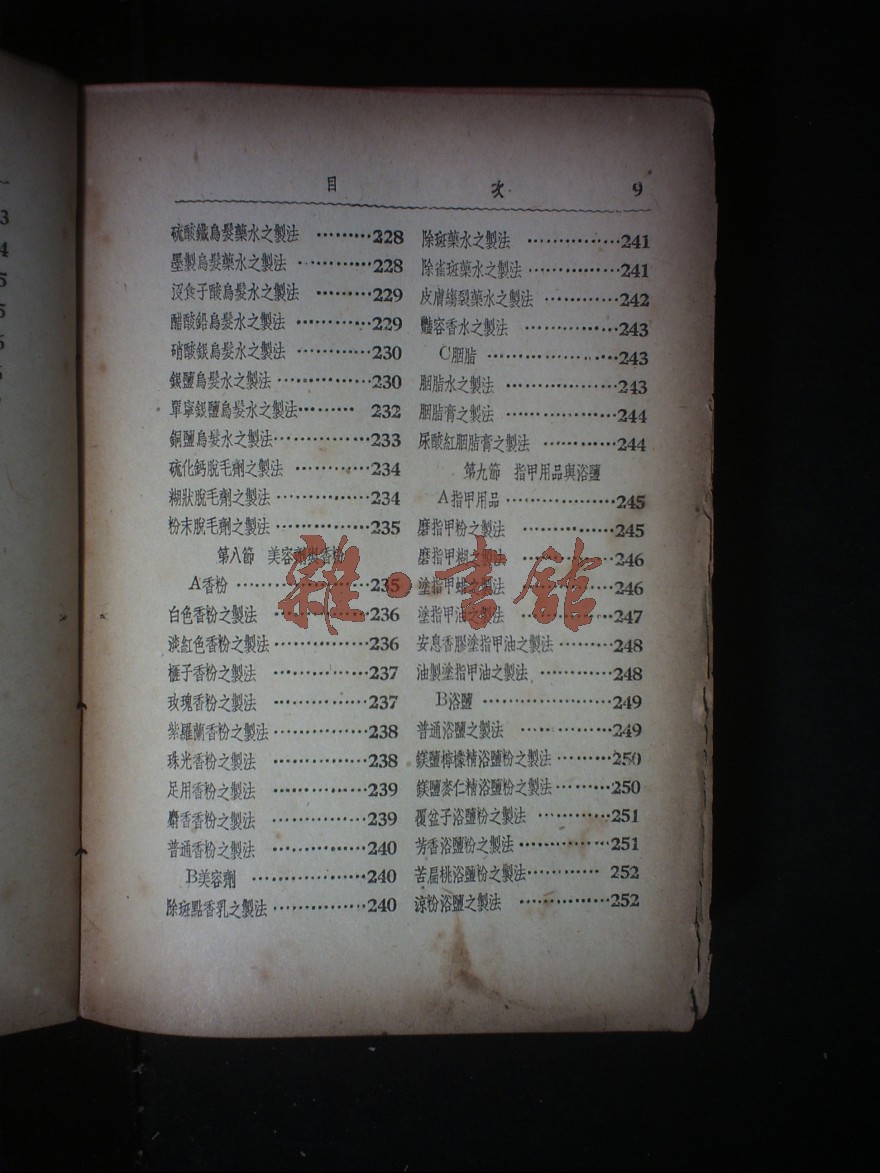 目 次 9
硫酸鐵烏髮藥水之製法 ………228
墨製烏髮藥水之製法 …………228
沒食子酸烏髮水之製法 ………229
醋酸鉛烏髮水之製法 …………229
硝酸銀烏髮水之製法 …………230
銀鹽烏髮水之製法 ……………230
單寧銀鹽烏髮水之製法……… 232
銅鹽烏髮水之製法……………233
硫化鈣脫毛劑之製法 …………234
糊狀脫毛劑之製法 ……………234
粉末脫毛劑之製法 ……………235
第八節 美容劑與香粉
A香粉 …………………235
白色香粉之製法 ………………236
淡紅色香粉之製法……………236
榧子香粉之製法 ………………237
玫瑰香粉之製法 ………………237
紫羅蘭香粉之製法……………238
珠光香粉之製法 ………………238
足用香粉之製法 ………………239
麝香香粉之製法 ………………239
普通香粉之製法 ………………240
B美容劑 …………………240
除斑點香乳之製法 ……………240
除斑藥水之製法 ………………241
除雀斑藥水之製法……………241
皮膚縐裂藥水之製法 …………242
豔容香水之製法 ………………243
C胭脂 …………………243
胭脂水之製法 …………………243
胭脂膏之製法 …………………244
尿酸紅胭脂膏之製法 …………244
第九節 指甲用品與浴鹽
A指甲用品 ………………245
磨指甲粉之製法 ………………245
磨指甲糊之製法 ………………246
塗指甲蜡之製法 ………………246
塗指甲油之製法 ………………247
安息香膠塗指甲油之製法 ……248
油製塗指甲油之製法 …………248
B浴鹽 …………………249
普通浴鹽之製法 ………………249
鎂鹽檸檬精浴鹽粉之製法 ……250
鎂鹽麥仁精浴鹽粉之製法 ……250
覆盆子浴鹽粉之製法 …………251
芳香浴鹽粉之製法……………251
苦扁桃浴鹽粉之製法………… 252
涼粉浴鹽之製法 ……………252
雜·書館
3
4
5
5